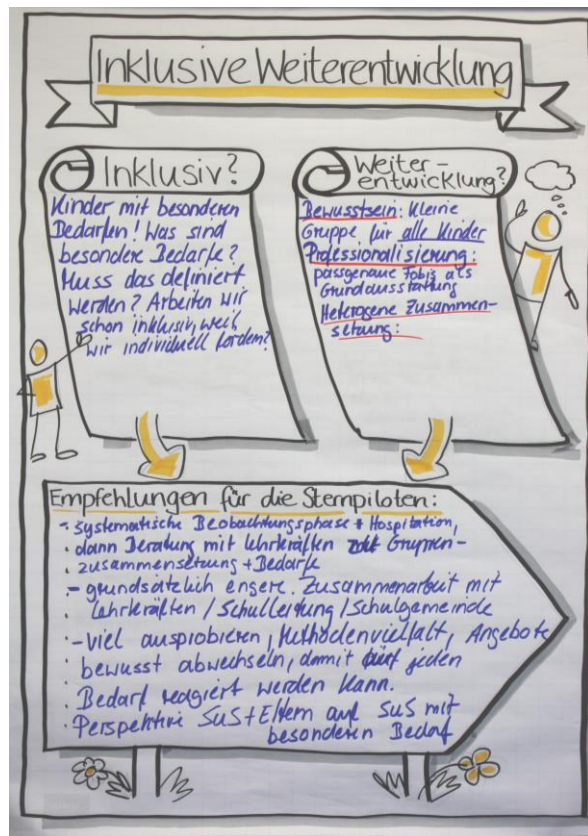 Inklusive Weiterentwicklung
Inklusiv?
Kinder mit besonderen
Bedarfen! Was sind
besondere Bedarfe?
Muss das definiert
werden? Arbeiten wir
schon inklusiv, weil
wir individuell fördern?
Weiter-
entwicklung?
Bewusstsein: Kleine
Gruppe für alle Kinder
Professionalisierung:
passgenaue Fobis als
Grundausstattung
Heterogene Zusammen-
setzung:
Empfehlungen für die Sternpiloten:
- systematische Beobachtungsphase + Hospitation,
dann Beratung mit Lehrkräften Gruppen-
zusammensetzung + Bedarfe
- grundsätzlich engere Zusammenarbeit mit
Lehrkräften / Schulleitung / Schulgemeinde
- viel ausprobieren, Methodenvielfalt, Angebote
bewusst abwechseln, damit jeden
Bedarf reagiert werden kann.
Perspektive SuS + Eltern auf SuS mit
besonderen Bedarf